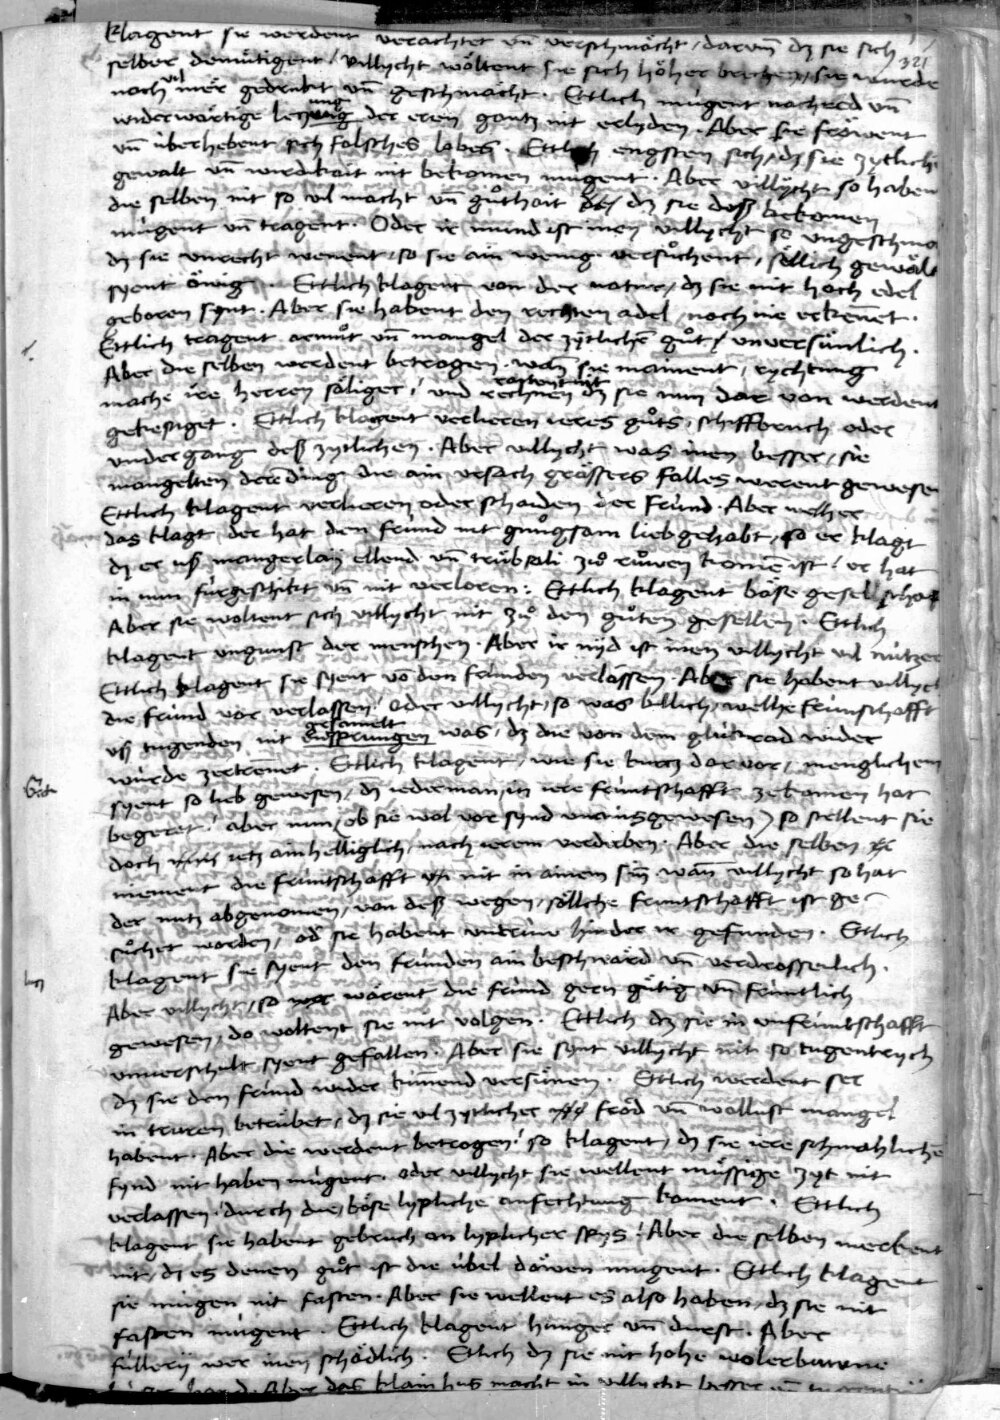 klagent sie werdent verachtet vn̄ verschmächt / darum̄ dz sie sich
321
selber demüttigent / villycht wöltent sie sich höher brechen / sie wurde
noch vil mer gedrukt vn̄ geschmächt . Ettlich mügent nachred vn̄
widerwärtige letzung der eren gantz nit erlyden . Aber sie fröwent
vn̄ überhebent sich falsches lobes . Ettlich engsten sich / dz sie zytlich
gewalt vn̄ wirdikait nit bekomen mügent . Aber villycht so haben
die selben nit so vil macht vn̄ gůthait dz sie deß bekomen
mügent vn̄ tragent . Oder ir mund ist inen villycht so vngeschma
dz sie vnrecht wenent / so sie ain wenig versůchent / söllich gewält
syent öwig . Ettlich klagent von der natur / dz sie nit hoch edel
geboren synt . Aber sie habent den rechten adel noch nie erkēnet .
Ettlich tragent armůt vn̄ mangel der zytlichē gůt / unversünlich .
Aber die selben werdent betrogen . wan̄ sie mainent / rychtung
mache ire herren säliger / und rechnen dz sie nun dar von werdent
gekestiget . Ettlich klagent verlieren ieres gůts / schiffbruch oder
vndergang deß zytlichen . Aber villycht was inen besser / sie
mangelten dere ding die ain vrsach grössers falles werent gewesen
Ettlich klagent verlieren oder schaiden der fründ . Aber welher
das klagt / der hat den fründ nit gnůgsam lieb gehabt / so er klagt
dz er uß mangerlay ellend vn̄ trübsali zů růwen komē ist / er hat
in nun fürgeschikt vn̄ nit verloren : Ettlich klagent böse gesellschaft
Aber sie woltent sich villycht nit zů den gůten gesellen . Ettlich
klagent vngunst der menschen . Aber ir nyd ist inen villycht vil nützer
Ettlich klagent sie syent vo den fründen verlassen . Aber sie habent villycht
die fründ vor verlassen / oder villycht / so was billich / welhe früntschafft
vß tugenden nit gesamelt entsprungen was / dz die von dem glükrad wider
würde zertrēnet . Ettlich klagent / wie sie kurtz dar vor / menglichem
syent so lieb gewesen / dz iederman / in iere früntschafft zekomen hat
begeret / aber nun / ob sie wol vor synd vnainsgewesen / so stellent sie
doch ietz ainhelliglich / nach ierem verderben . Aber die selben
niement die früntschafft nit in ainem sin̄ wan̄ villycht so hat
der nutz abgenomen / von deß wegen / söllche früntschafft ist ge
sůchet worden / od sie habent vntrüw hinder ir gefunden . Ettlich
klagent sie syent den fründen ain beschwärd vn̄ verdrossenlich .
Aber villycht / so wärent die fründ gern gütig vn̄ früntlich
gewesen / do woltent sie nit volgen . Ettlich dz sie in vnfrüntschafft
vnuerschult syent gefallen . Aber sie synt villycht nit so tugentrych
dz sie den fründ wider künnend versünen . Ettlich werdent ser
in truren betrübet / dz sie vil zytlicher fröd vn̄ wollust mangel
habent . Aber die werdent betrogen / so klagent / dz sie iere schmahliche
fynd nit haben mügent . oder villycht sie wellent müssige zyt nit
verlassen / durch die böse lypliche anfechtung koment . Ettlich
klagent sie habent gebruch an lyplicher spys / Aber die selben merkent
nit / dz es denen gůt ist die übel döwen mugent . Ettlich klagent
sie mügen nit fasten . Aber sie wellent es also haben / dz sie nit
fasten mügent . Ettlich klagent hunger vn̄ durst . Aber
füllery wer inen schädlich . Ettlich dz sie nit hohe wolerbuwne
hüser hand . Aber das klain hus macht in villycht besser vn̄